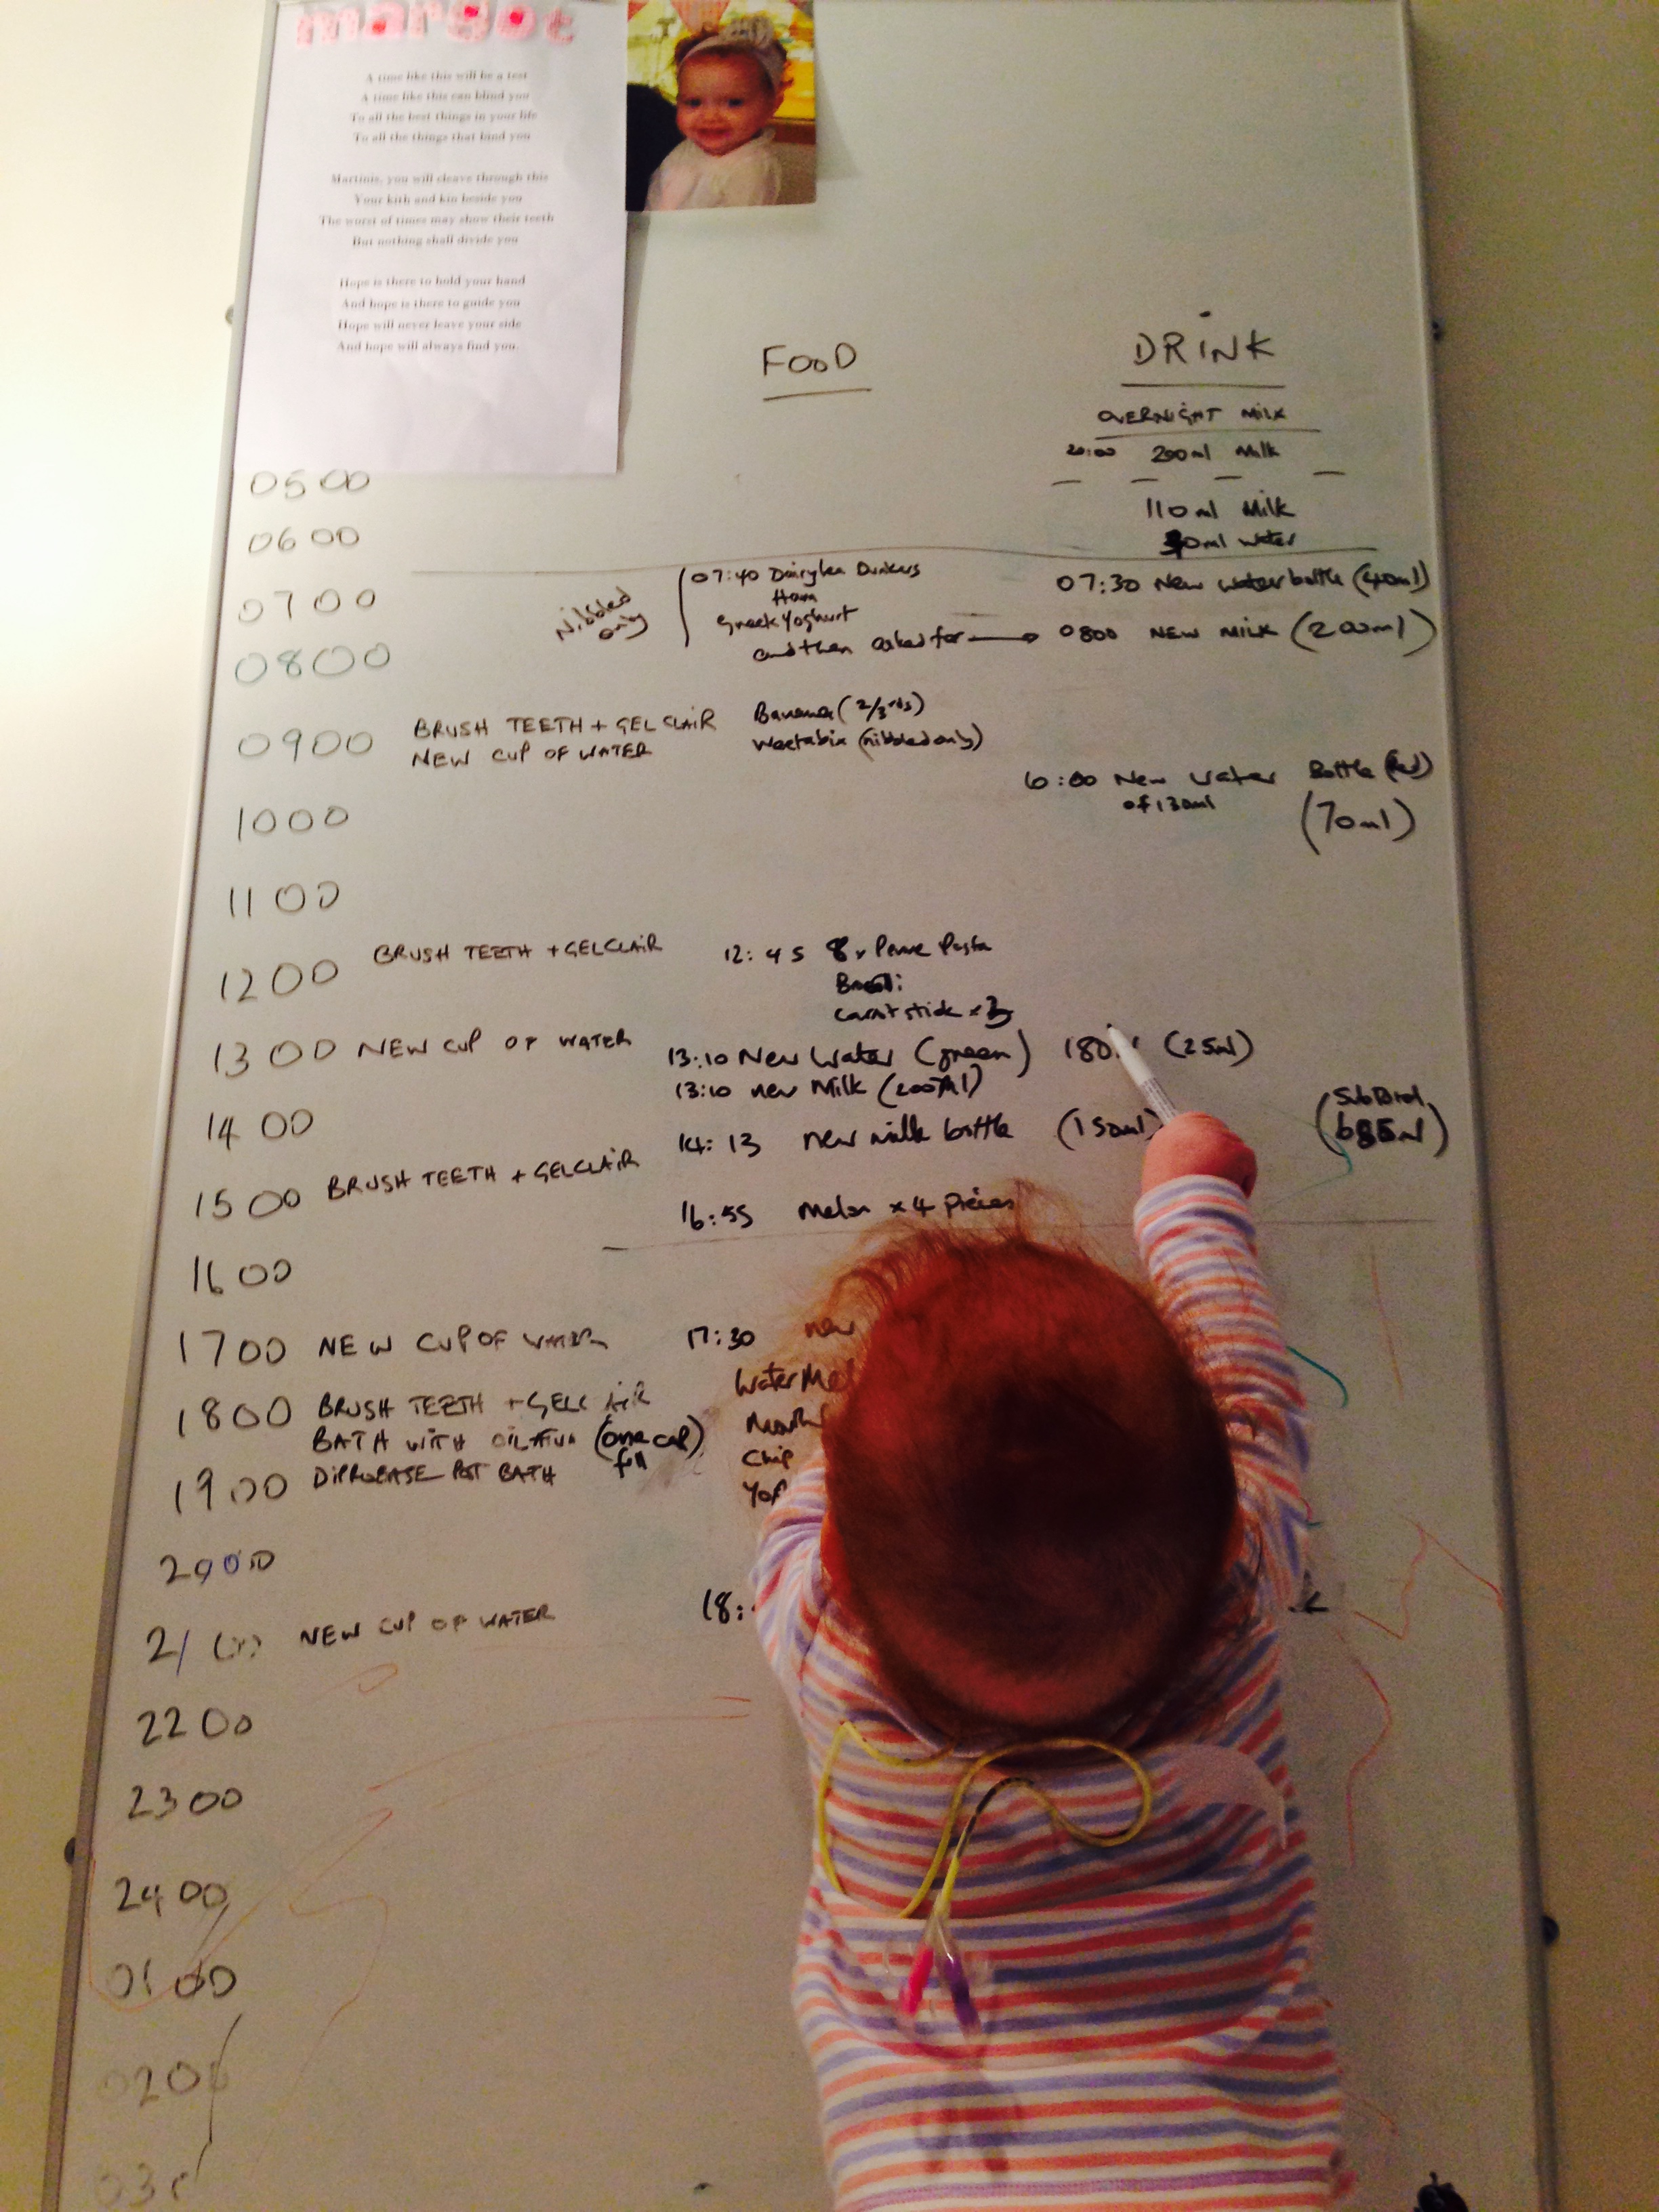 margot
A time like this will be a test
A time like this can blind you
To all the best things in your life
To all the things that bind you
Martinis, you will cleave through this
Your kith and kin beside you
The worst of times may show their teeth
But nothing shall divide you
Hope is there to hold your hand
And hope is there to guide you
Hope will never leave your side
And hope will always find you.
FOOD
DRINK
OVERNIGHT MILK
20:00 200ml Milk
0500
110ml Milk
0600
ml water
0700
Nibbled only
07:40 Dairylea Dunkers
Ham
Greek Yoghurt
and then asked for
07:30 New water bottle (40ml)
0800 NEW MILK (200ml)
0800
0900
BRUSH TEETH + GELCLAIR
NEW CUP OF WATER
Banana (2/3rds)
Weetabix (nibbled only)
New water Bottle (Red)
of 130ml
(70ml)
1000
1100
1200
BRUSH TEETH + GELCLAIR
12:45 8 x Penne Pasta
carrot stick x
1300 NEW CUP OF WATER
13:10 New Water (green) 180 (25ml)
13:10 new Milk (200ml)
1400
14:13 new milk bottle (150ml)
Subtotal
(685ml)
1500 BRUSH TEETH + GELCLAIR
16:55 Melon x 4 pieces
1600
1700 NEW CUP OF WATER
17:30 new
Water Mel
1800 BRUSH TEETH + GELCLAIR
BATH WITH OILATUM (one cap full)
Chip
1900 DIPROBASE POST BATH
Yog
2000
18:
2100 NEW CUP OF WATER
2200
2300
2400
0100
020
03